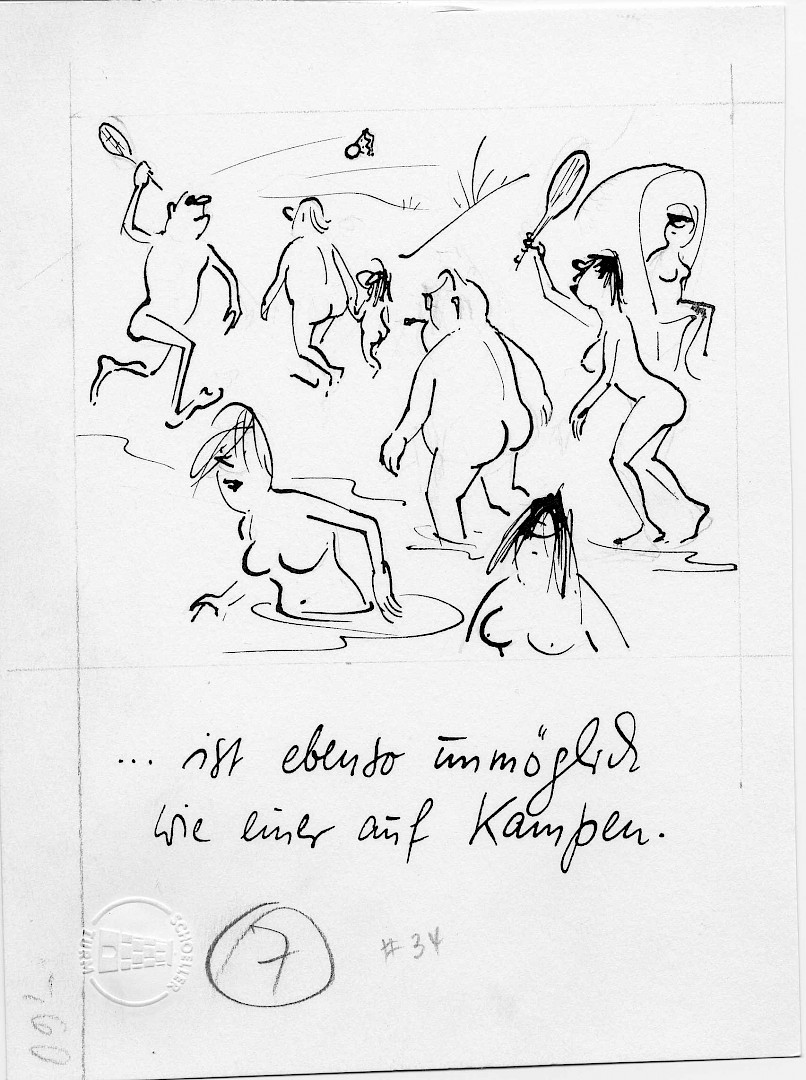 ... ist ebenso unmöglich
wie einer auf Kampen.
SCHOELLER
TURM
7
# 34